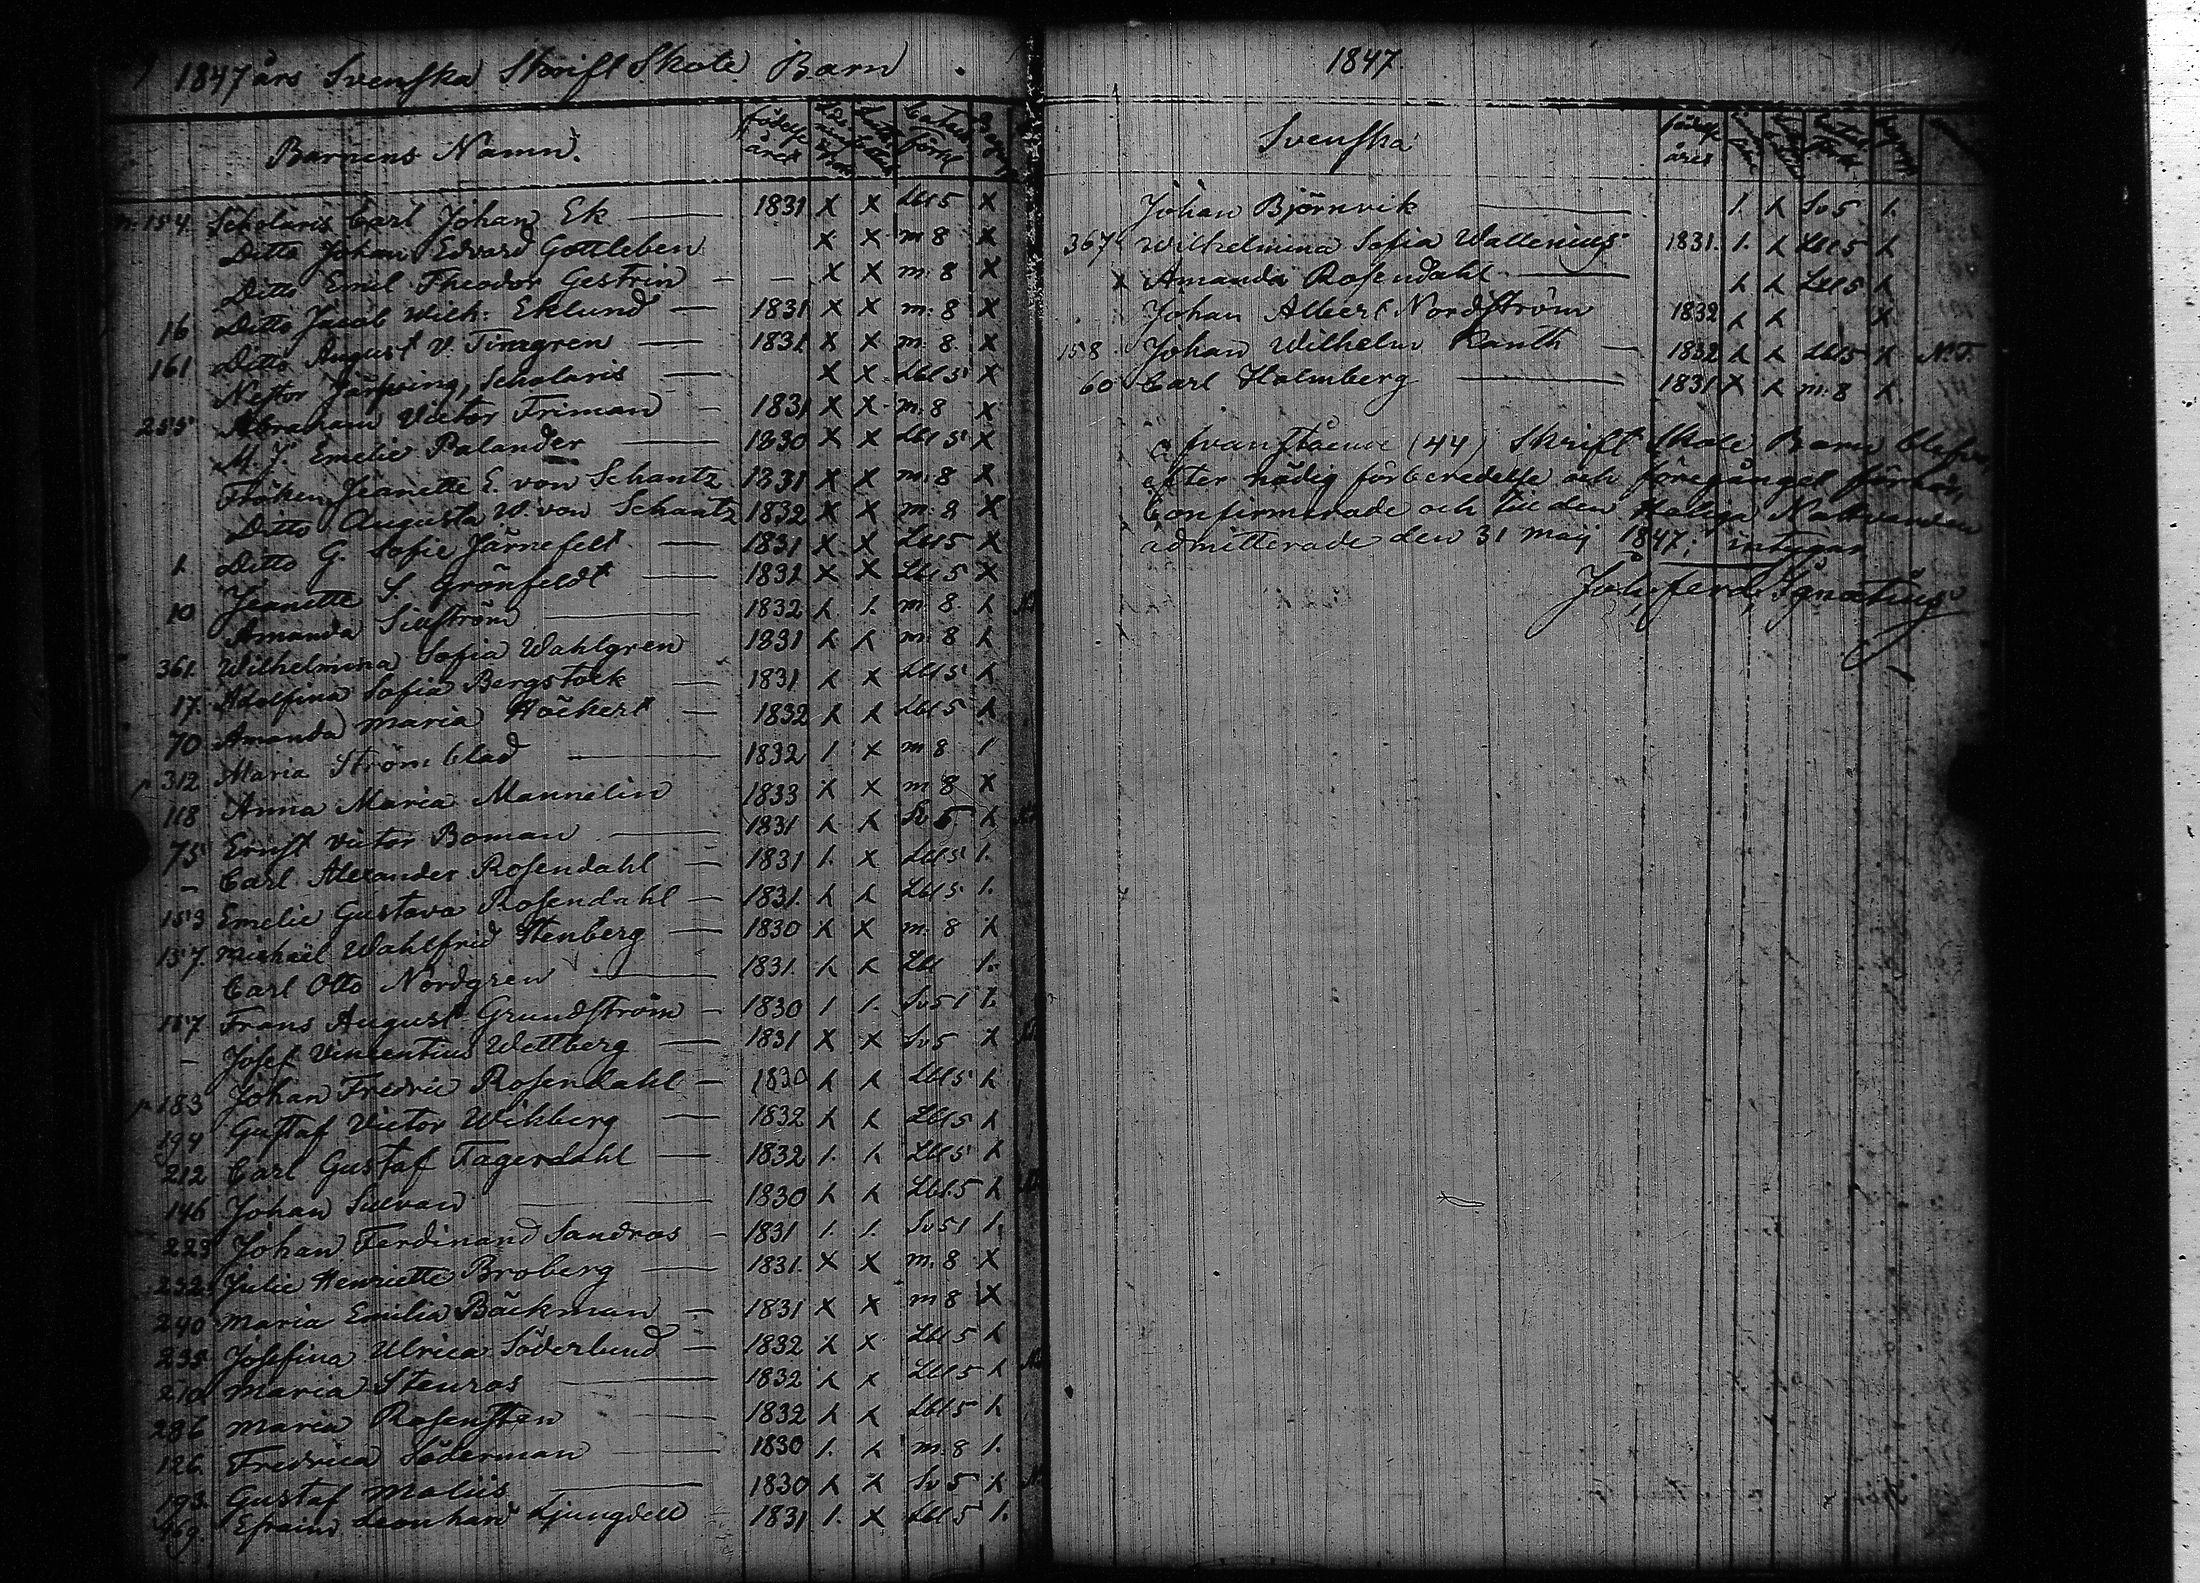 1847 års Svenska Skrift Skole Barn
Barnens Namn. födelse året
N:154 Scholaris Carl Johan Ek — 1831 x x Lbl 5 x
Ditto Johan Edvard Gottleben x x m 8 x
Ditto Emil Theodor Gestrin — — x x m: 8 x
16 Ditto Jacob Wilh: Eklund — 1831 x x m: 8 x
161 Ditto August V. Timgren — 1832 x x m: 8. x
Nestor Järfving, Scholaris — x x Lbl 5 x
255 Abraham Victor Friman — 1831 x x m: 8 x
M. J. Emelie Palander — 1830 x x Lbl 5 x
Fröken Jeanette E. von Schantz 1831 x x m: 8 x
Ditto Augusta W. von Schantz 1832 x x m: 8 x
1 Ditto G. Sofie Järnefelt — 1831 x x Lbl 5 x
10 Jeanette S. Grönfeldt — 1832 x x Lbl 5 x
Amanda — 1832 h 1. m: 8. h
361. Wilhelmina Sofia Wahlgren 1831 h h m: 8 h
17. Adolfina Sofia Bergstock — 1831 h x Lbl 5 h
70 Amanda Maria Höckert — 1832 h h Lbl 5 h
312 Maria Strömblad — 1832 1. x m 8 1
118 Anna Maria Mannelin 1833 x x m 8 x
75 Ernst Victor Boman — 1831 h h Sv 5 h
– Carl Alexander Rosendahl — 1831 1. x Lbl 5 1.
153 Emelie Gustava Rosendahl — 1831. h h Lbl 5. 1.
157. Michaël Wahlfrid Stenberg — 1830 x x m: 8 x
Carl Otto Nordgren — 1831. h h Lbl 1.
187 Frans August Grundström — 1830 1 1. Sv 5 1 1.
– Josef Vincentius Wettberg — 1831 x x Sv 5 x
183 Johan Fredric Rosendahl — 1830 h h Lbl 5 h
194 Gustaf Victor Wihberg — 1832 h h Lbl 5 h
212 Carl Gustaf Fagerdahl — 1832 1. h Lbl 5 h
146 Johan — 1830 h h Lbl. 5 h
223 Johan Ferdinand Sandroos — 1831 1. 1. Sv 5 1 1.
232 Julie Henriette Broberg — 1831. x x m. 8 x
240 Maria Emilia Bäckman — 1831 x x m 8 x
235 Josefina Ulrica Söderlund — 1832 h x Lbl 5 h
210 Maria Stenros — 1832 h x Lbl 5 h
286 Maria Rosensten — 1832 h h Lbl 5 h
126. Fredrica Söderman — 1830 1. h m. 8 1.
193. Gustaf Malus — 1830 h h Sv 5 h
469. Efraim Leonhard Ljungdell 1831 1. x Lbl 5 1.
1847
Svenska födelse året
Johan Björnvik — 1. h Sv 5 1.
367 Wilhelmina Sofia Wallenius 1831. 1. h Lbl 5 h
x Amanda Rosendahl — h h Lbl 5 h
Johan Albert Nordström 1832 h h x
158 Johan Wilhelm Ranth — 1832 h h Lbl 5 x N.T.
60 Carl Holmberg — 1831 x h m: 8 h
Ofvanstående (44) Skrift Skole Barn blefvo,
efter nödig förberedelse och föregånget förhör,
Confirmerade och till den Heliga Nattvarden
admitterade den 31 Maj 1847; intygar
Joh. Ferd. Ignatius